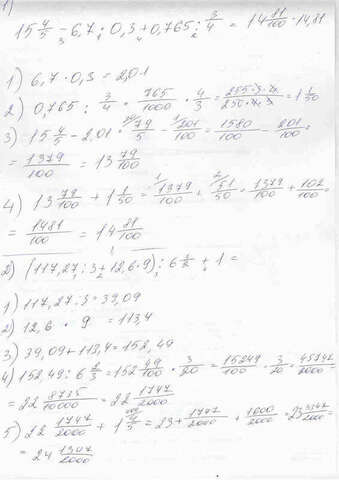 1)
15 4/5 - 6,7 · 0,3 + 0,765 : 3/4 = 14 81/100 = 14,81
1) 6,7 · 0,3 = 2,01
2) 0,765 : 3/4 = 765/1000 · 4/3 = = 1 1/50
3) 15 4/5 - 2,01 = 79/5 - 201/100 = 1580/100 - 201/100 =
= 1379/100 = 13 79/100
4) 13 79/100 + 1 1/50 = 1379/100 + 51/50 = 1379/100 + 102/100 =
= 1481/100 = 14 81/100
2) (117,27 : 3 + 12,6 · 9) : 6 + 1 =
1) 117,27 : 3 = 39,09
2) 12,6 · 9 = 113,4
3) 39,09 + 113,4 = 152,49
4) 152,49 : 6 2/3 = 152 49/100 · 3/20 = 15249/100 · 3/20 = 45747/2000 =
= 22 8735/10000 = 22 1747/2000
5) 22 1747/2000 + 1 = 23 + 1747/2000 + /2000 = 23 /2000 =
= 24 /2000